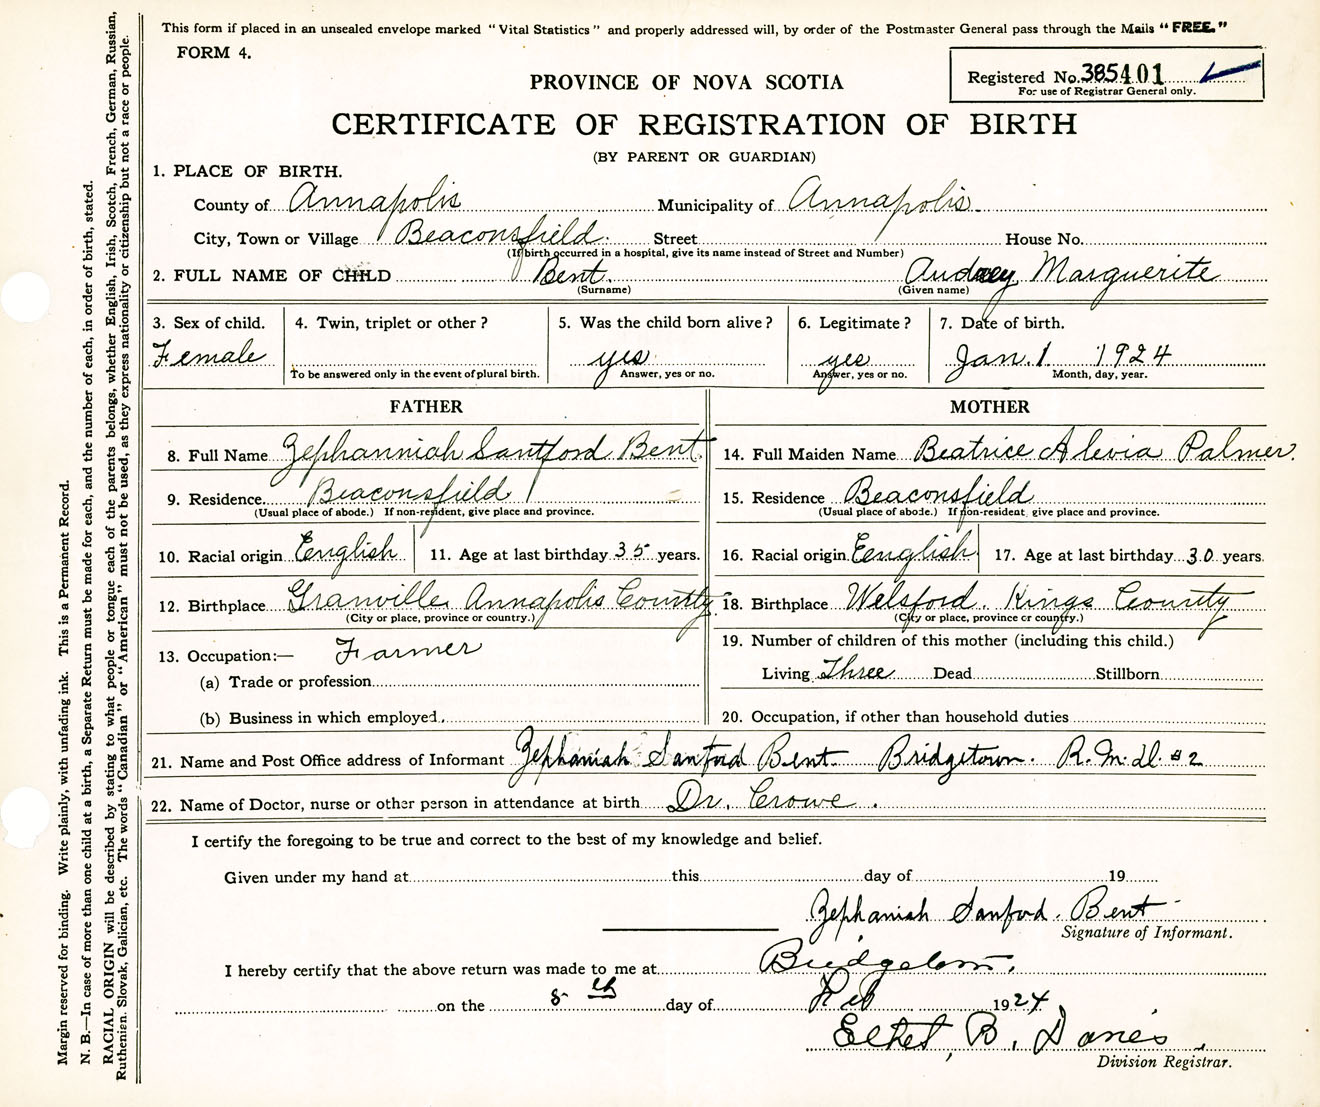 This form if placed in an unsealed envelope marked "Vital Statistics" and properly addressed will, by order of the Postmaster General pass through the Mails "FREE."
FORM 4.
Registered No. 385401
For use of Registrar General only.
PROVINCE OF NOVA SCOTIA
CERTIFICATE OF REGISTRATION OF BIRTH
(BY PARENT OR GUARDIAN)
1. PLACE OF BIRTH.
County of Annapolis Municipality of Annapolis
City, Town or Village Beaconsfield. Street House No.
(If birth occurred in a hospital, give its name instead of Street and Number)
2. FULL NAME OF CHILD Bent. Audrey Marguerite
(Surname) (Given name)
3. Sex of child. 4. Twin, triplet or other? 5. Was the child born alive? 6. Legitimate? 7. Date of birth.
Female yes yes Jan. 1 1924
To be answered only in the event of plural birth. Answer, yes or no. Answer, yes or no. Month, day, year.
FATHER
8. Full Name Zephanniah Santford Bent.
9. Residence. Beaconsfield
(Usual place of abode.) If non-resident, give place and province.
10. Racial origin English 11. Age at last birthday 35 years.
12. Birthplace Granville Annapolis County
(City or place, province or country.)
13. Occupation:— Farmer
(a) Trade or profession
(b) Business in which employed
MOTHER
14. Full Maiden Name Beatrice Alevia Palmer.
15. Residence Beaconsfield
(Usual place of abode.) If non-resident, give place and province.
16. Racial origin English 17. Age at last birthday 30 years.
18. Birthplace Welsford. Kings County
(City or place, province or country.)
19. Number of children of this mother (including this child.)
Living Three Dead Stillborn
20. Occupation, if other than household duties
21. Name and Post Office address of Informant Zephaniah Sanford Bent. Bridgetown. R.M.D. #2
22. Name of Doctor, nurse or other person in attendance at birth Dr. Crowe.
I certify the foregoing to be true and correct to the best of my knowledge and belief.
Given under my hand at this day of 19
Zephaniah Sanford. Bent
Signature of Informant.
I hereby certify that the above return was made to me at Bridgetown.
on the 8th day of Feb 1924
B.
Division Registrar.
Margin reserved for binding. Write plainly, with unfading ink. This is a Permanent Record.
N. B.—In case of more than one child at a birth, a Separate Return must be made for each, and the number of each, in order of birth, stated.
RACIAL ORIGIN will be described by stating to what people or tongue each of the parents belongs, whether English, Irish, Scotch, French, German, Russian,
Ruthenian, Slovak, Galician, etc. The words "Canadian" or "American" must not be used, as they express nationality or citizenship but not a race or people.